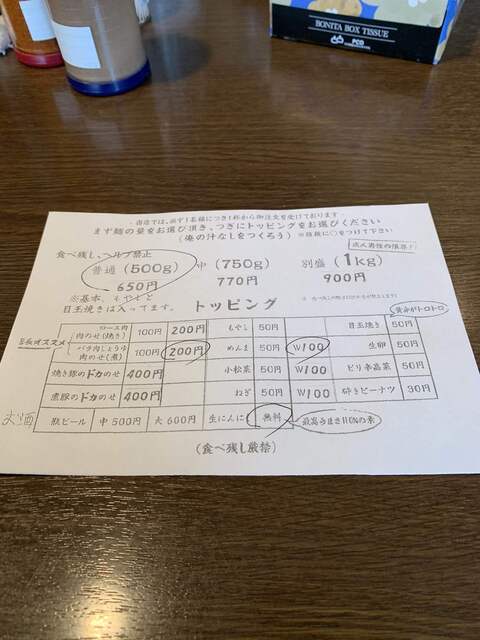 BONITA BOX TISSUE
PCO
- 当店では、必ず1名様につき1杯から御注文を受けております -
まず麺の量をお選び頂き、つぎにトッピングをお選びください
(俺の汁なしをつくろう) ※段階に○をつけて下さい
食べ残し、ヘルプ禁止
成人男性の限界!
普通 (500g) 中 (750g) 別盛 (1kg)
650円 770円 900円
※基本、もやしと
目玉焼きは入ってます。
トッピング
黄身がトロトロ
店長オススメ
ロース肉
肉のせ(焼き) 100円 200円 もやし 50円 目玉焼き 50円
バラ肉しょうゆ
肉のせ(煮) 100円 200円 めんま 50円 W100 生卵 50円
焼き豚のドカのせ 400円 小松菜 50円 W100 ピリ辛高菜 50円
煮豚のドカのせ 400円 ねぎ 50円 W100 砕きピーナツ 30円
お酒 瓶ビール 中 500円 大 600円 生にんに 無料 最高うまさ110%の素
(食べ残し厳禁)